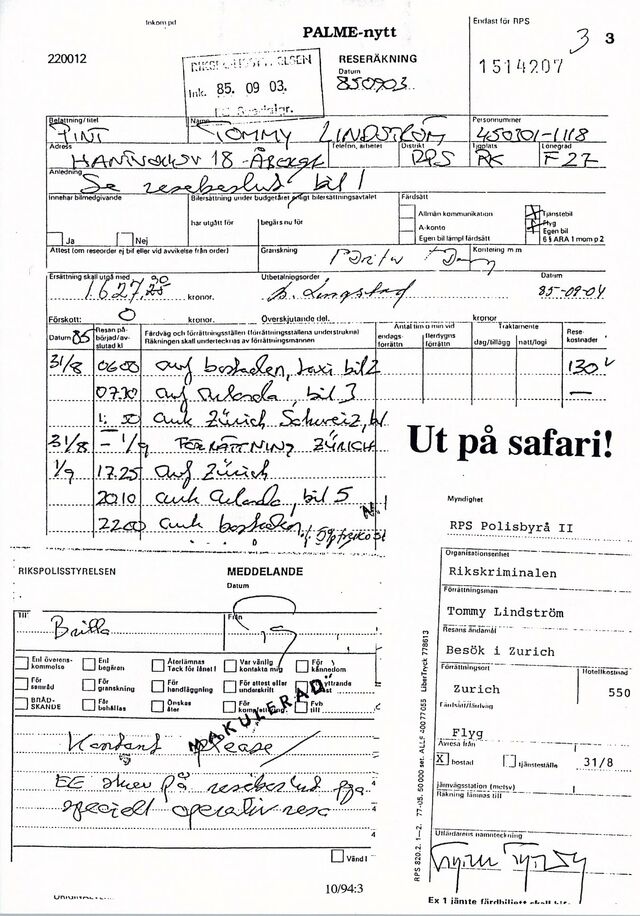 Inkom pd
PALME-nytt
Endast för RPS
3
3
220012
RESERÄKNING
Datum
850903
1514207
Ink. 85. 09 03.
Befattning/titel
Namn
Personnummer
TOMMY LINDSTRÖM
450701-1118
Adress
Telefon, arbetet
Distrikt
Tjgplats
Lönegrad
HANTVERKSV 18 - ÅBERGA
RPS
RK
F 27
Anledning
Se resebeslut bil 1
Innehar bilmedgivande
Bilersättning under budgetåret enligt bilersättningsavtalet
Färdsätt
har utgått för
begärs nu för
Allmän kommunikation
Tjänstebil
A-konto
Flyg
Egen bil lämpl färdsätt
Egen bil
6 § ARA 1 mom p 2
Ja
Nej
Attest (om reseorder ej bif eller vid avvikelse från order)
Granskning
Kontering m m
Ersättning skall utgå med
Utbetalningsorder
Datum
1.627,
kronor.
85-09-04
Förskott:
0
kronor.
Överskjutande del.
kronor
Datum 85
Resan påbörjad/avslutad kl
Färdväg och förrättningsställen (förrättningsställena understrukna)
Räkningen skall undertecknas av förrättningsmannen
Antal tim o min vid
endagsförrättn
flerdygnsförrättn
Traktamente
dag/tillägg
natt/logi
Resekostnader
31/8 0600 avf bostaden, taxi bil 2 130
07.10 avf Arlanda, bil 3 —
50 ank Zürich Schweiz, bil
31/8 – 1/9 FÖRRÄTTNING ZÜRICH
1/9 17.25 avf Zürich
2010 ank Arlanda, bil 5
2200 ank bostaden
Ut på safari!
Myndighet
RPS Polisbyrå II
Organisationsenhet
Rikskriminalen
Förrättningsman
Tommy Lindström
Resans ändamål
Besök i Zurich
Förrättningsort
Hotellkostnad
Zurich
550
Färdsätt/färdväg
Flyg
Avresa från
X bostad
tjänsteställe
31/8
järnvägsstation (motsv)
Räkning lämnas till
Utfärdarens namnteckning
Ex 1 jämte färdbiljett skall
RPS 820.2. 1—2. 77-05. 50 000 ser. ALLF 400 77 055 LiberTryck 778613
RIKSPOLISSTYRELSEN
MEDDELANDE
Datum
Till
Från
Britta
Enl överenskommelse
Enl begäran
Återlämnas Tack för lånet!
Var vänlig kontakta mig
För kännedom
För samråd
För granskning
För handläggning
För attest eller underskrift
Yttrande
BRÅDSKANDE
För behållas
Önskas åter
För
Fvb till
MAKULERAD
Kontant please!
EE skrev på resebeslut fga
speciell operativ resa
Vänd!
10/94:3